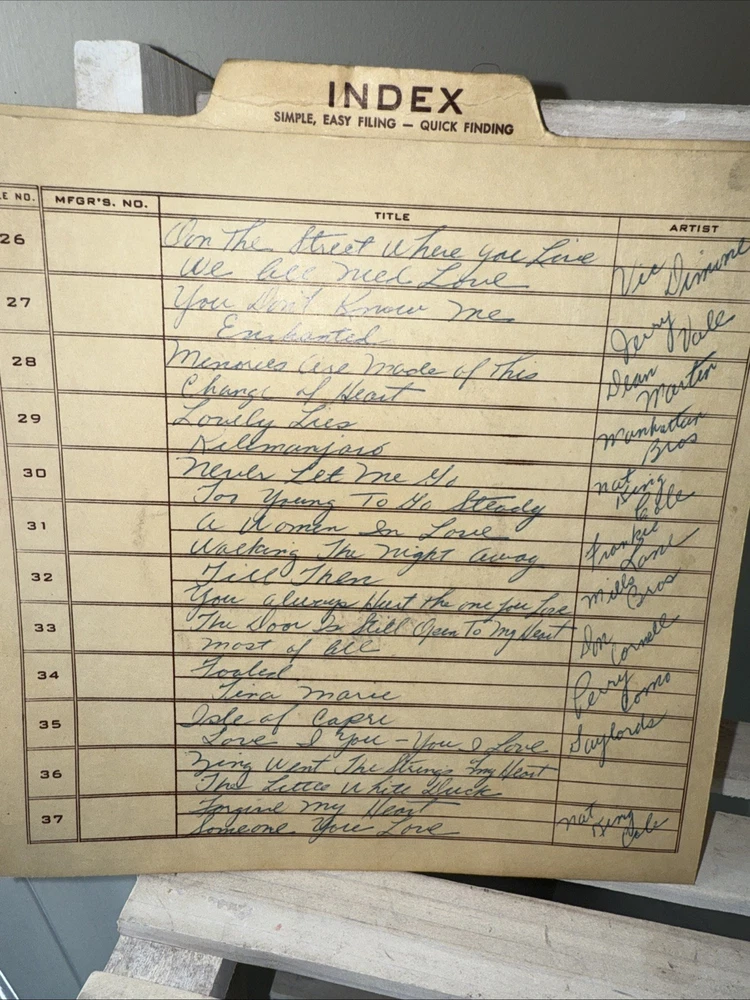 INDEX
SIMPLE, EASY FILING — QUICK FINDING
E NO. MFGR'S. NO. TITLE ARTIST
26 On The Street Where you Live Vic Dimone
We All Need Love
27 You Don't Know Me Jerry Vale
Enchanted
28 Memories Are Made of This Dean Martin
Change of Heart
29 Lovely Lies Manhattan Bros
Kilimanjaro
30 Never Let Me Go Nat King Cole
Too Young To Go Steady
31 A Women In Love Frankie Lane
Walking The Night Away
32 Till Then Mills Bros
You always Hurt the one you Love
33 The Door Is Still Open To My Heart Don Cornell
Most of All
34 Fooled Perry Como
Tina Marie
35 Isle of Capri Gaylords
Love I You - You I Love
36 Zing Went The Strings My Heart
The Little White Duck
37 Forgive My Heart Nat King Cole
Someone You Love